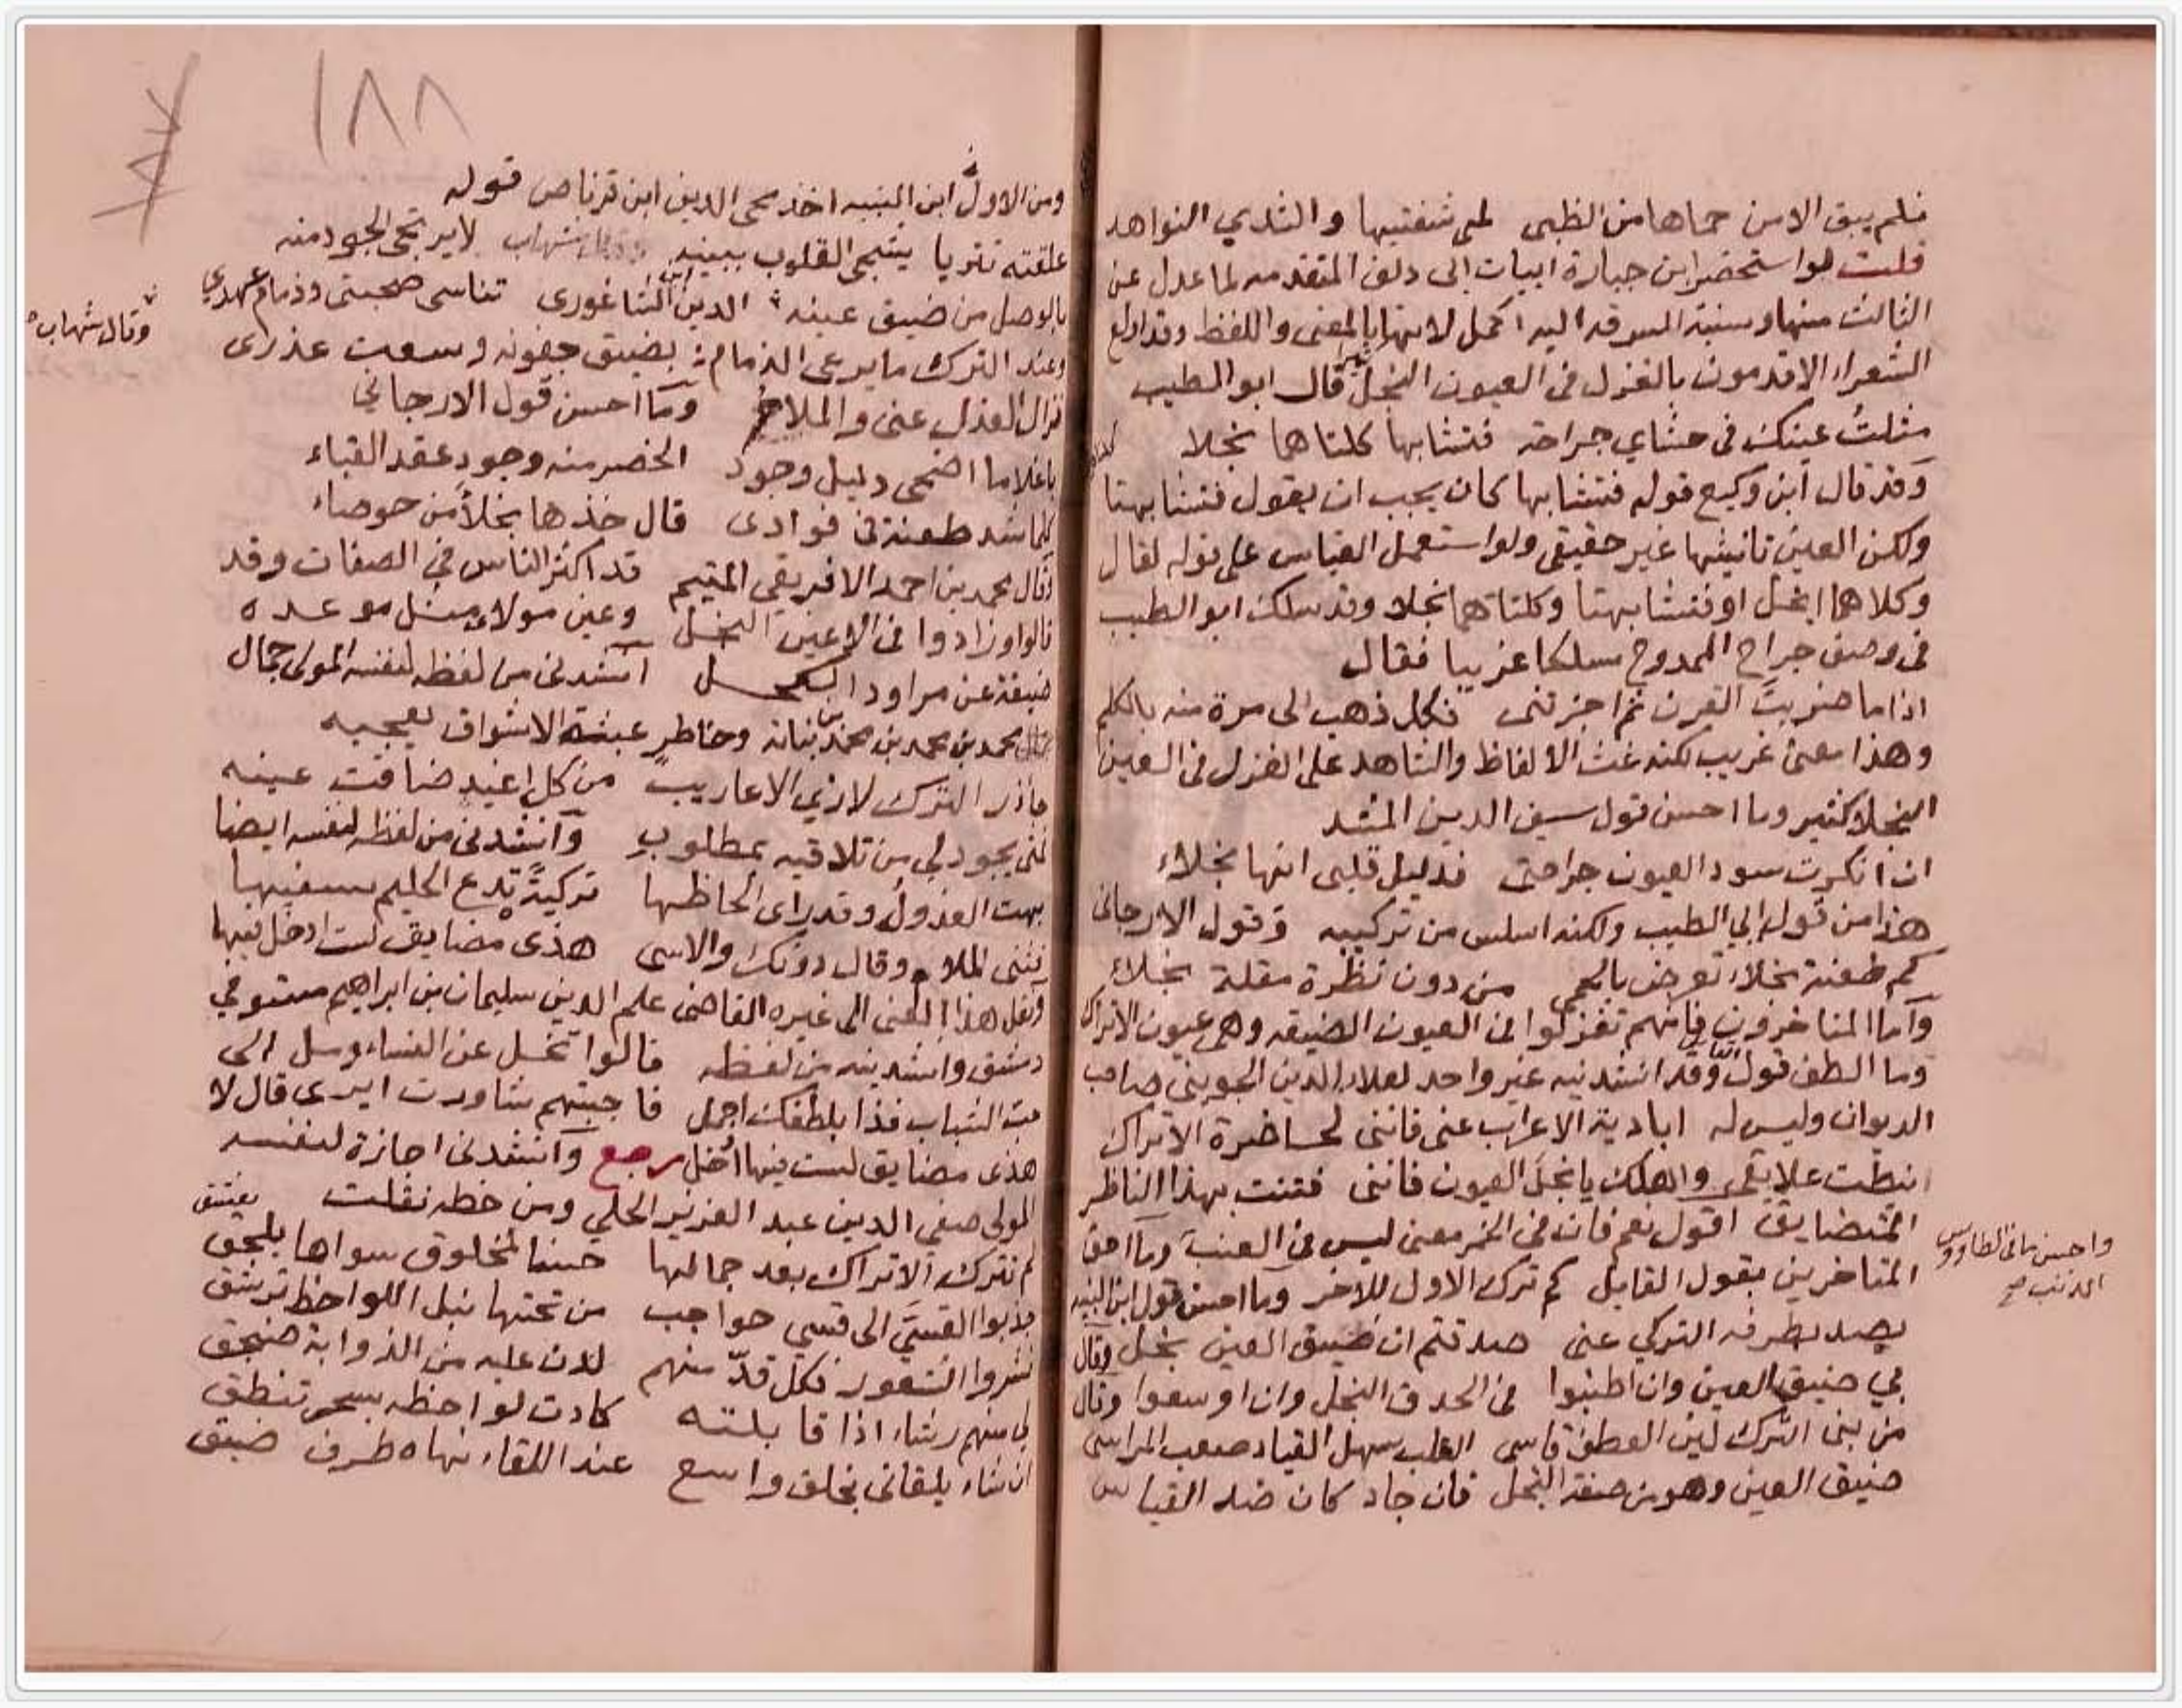 فلم يبق الامن حماها من الظبى لمى شفتيها والثدي النواهد
قلت لو استحضر ابن جبارة ابيات ابى دلف المتقدمه لما عدل عن
الثالث منها ونسبة السرقه اليه اكمل لانها بالمعنى واللفظ وقد اولع
الشعراء الاقدمون بالغزل فى العيون النجل قال ابو الطيب
مثلت عينك فى حشاي جراحة فتشابها كلتاهما نجلا
وقد قال ابن وكيع قوله فتشابها كان يجب ان يقول فتشابهتا
ولكن العين تانيثها غير حقيقي ولو استعمل القياس على قوله لقال
وكلاهما انجل او فتشابهتا وكلتاهما نجلا وقد سلك ابو الطيب
فى وصف جراح الممدوح مسلكا غريبا فقال
اذا ما ضربت القرن ثم اجزتنى فكل ذهبا لى مرة منه بالكلم
وهذا معنى غريب لكنه غث الالفاظ والشاهد على الغزل فى العين
النجلا كثير وما احسن قول سيف الدين المشد
ان انكرت سود العيون جراحتى فدليل قلبى انها نجلاء
هذا من قول ابي الطيب ولكنه اسلس من تركيبه وقول الارجانى
كم طعنة نجلاء تعرض بالحمى من دون نظرة مقلة نجلاء
وأما المتاخرون فانهم تغزلوا فى العيون الضيقه وهى عيون الاتراك
وما الطف قول وقد انشدنيه غير واحد لعلاء الدين الجوينى صاحب
الديوان وليس له ابادية الاعراب عنى فاننى لحاضرة الاتراك
نيطت علايقى واهلك يا نجل العيون فاننى فتنت بهذا الناظر
المتضايق اقول نعم فان فى الخمر معنى ليس فى العنب وما احق
المتاخرين بقول القايل كم ترك الاول للاخر وما احسن قول ابن النبيه
يصد بطرفه التركي عنى صدقتم ان ضيق العين بخل وقال
بي ضيق العين وان اطنبوا فى الحدق النجل وان اوسعوا وقال
من بنى الترك لين العطف قاسى القلب سهل القياد صعب المراسى
ضيق العين وهو من صفة البخل فان جاد كان ضد القياس
واحسن ما فى الطاووس
الذنب صح
١٨٨
ومن الاول ابن النبيه اخذ محى الدين ابن قرناص قوله
علقته تتريا يشجى القلوب ببينه لا يرتجى الجود منه
بالوصل من ضيق عينه الدين ابن الشاغورى تناسى صحبتى وذمام عهدي
وعند الترك ما يرعى الذمام بضيق جفونه وسعت عذرى
فزال العذل عنى والملام وما احسن قول الارجاني
ياغلاما اضحى دليل وجود الخصر منه وجود عقد القباء
كلما شد طعنة فى فوادى قال خذها نجلا من حوصاء
وقال محمد بن احمد الافريقي المتيم قد اكثر الناس في الصفات وقد
قالوا وزادوا فى الاعين النجل وعين مولاى مثل موعده
ضيقة عن مراود الكحل انشدنى من لفظه لنفسه المولى جمال
محمد بن محمد بن محمد بن نباته وخاطر عبثة الاشواق تعجبه
مآذر الترك لا زي الاعاريب من كل اغيد ضاقت عينه
فمتى يجود لي من تلاقيه بمطلوب وانشدنى من لفظه لنفسه ايضا
بهت العذول وقد راى الحاظها تركية تدع الحليم سفيها
فثنى الملام وقال دونك والاسى هذى مضايق لست ادخل فيها
ونقل هذا المعنى الى غيره القاضى علم الدين سليمان بن ابراهيم مستوفي
دمشق وانشدنيه من لفظه قالوا تخل عن النساء ومل الى
حب الشباب فذا بلطفك اجمل فاجبتهم شاورت ايرى قال لا
هذى مضايق لست فيها ادخل رجع وانشدنى اجازة لنفسه
المولى صفي الدين عبد العزيز الحلي ومن خطه نقلت يعشق
لم تترك الاتراك بعد جمالها حسنا لمخلوق سواها يلحق
جذبوا القسي الى قسي حواجب من تحتها نبل اللواحظ ترشق
نشروا الشعور فكل قد منهم لدن عليه من الذوابة صنجق
لى منهم رشاء اذا قابلته كادت لواحظه بسحر تنطق
ان شاء يلقانى بخلق واسع عند اللقاء نهاه طرف ضيق
وقال شهاب